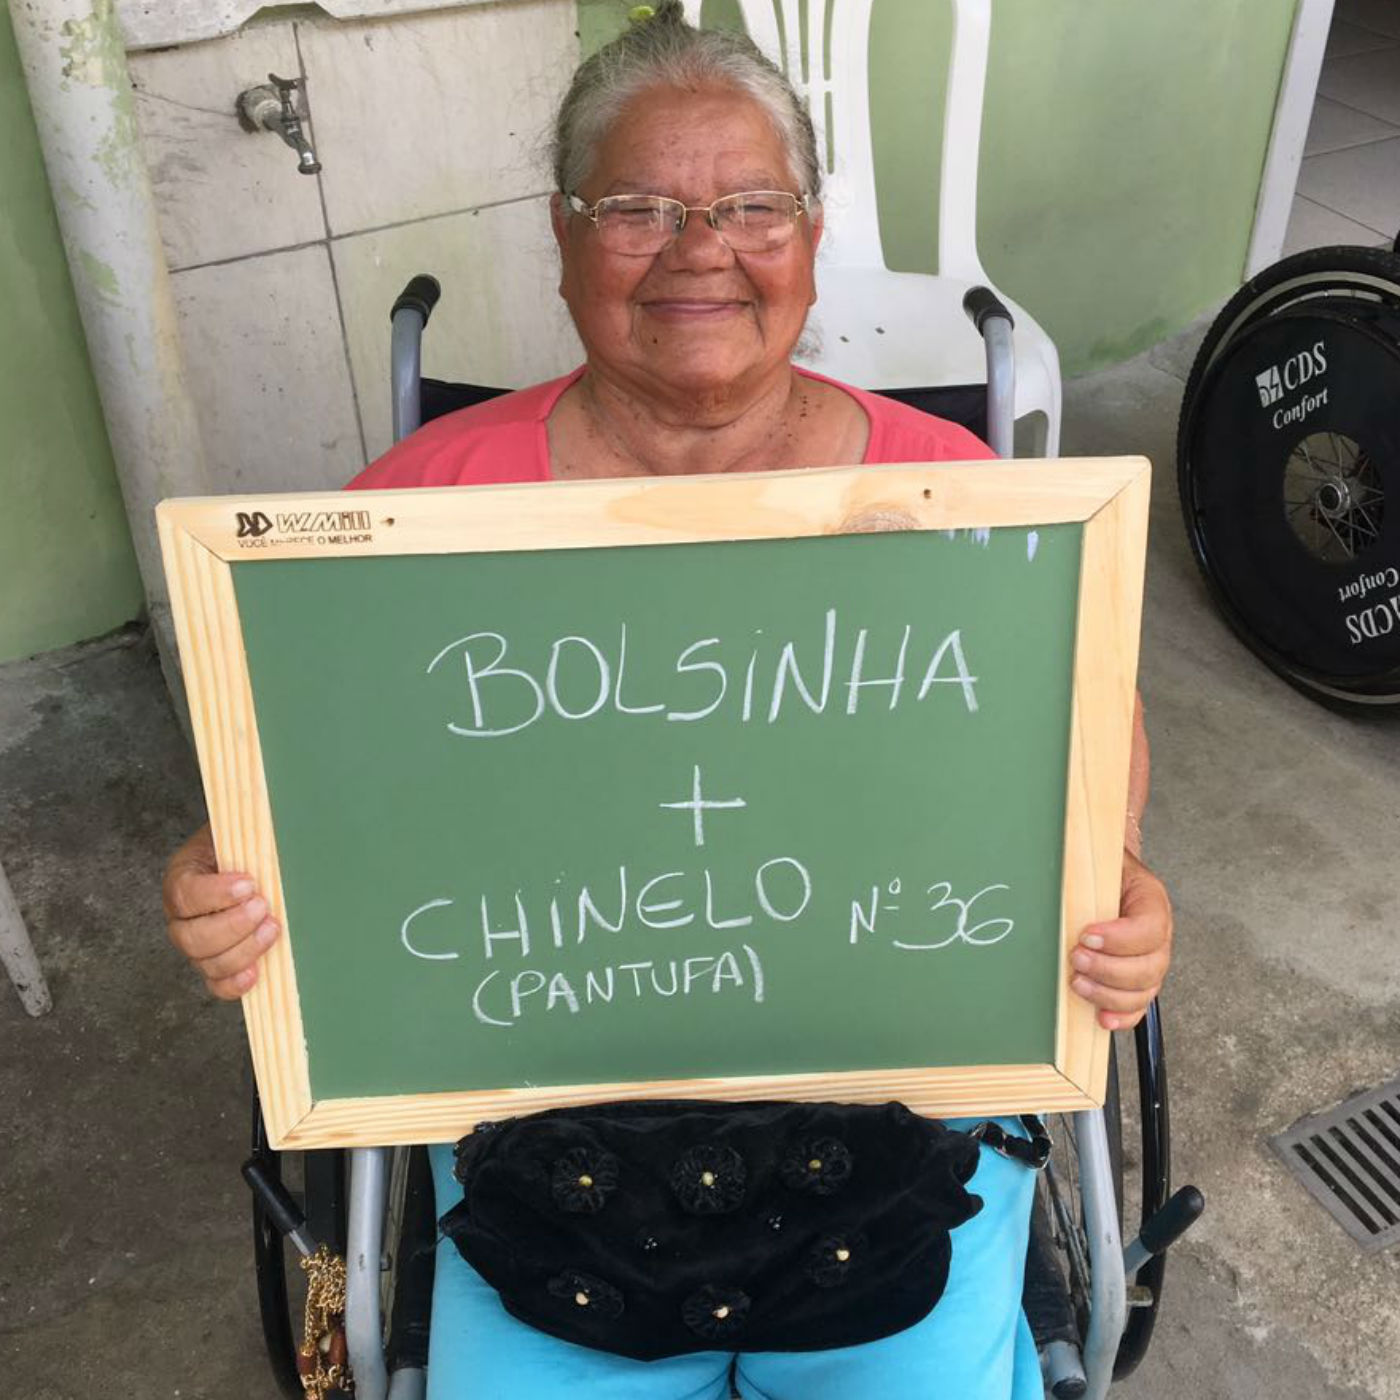 W.Mill
VOCÊ MERECE O MELHOR
BOLSiNHA
+
CHiNELO Nº 36
(PANTUFA)
CDS
Confort
Confort
CDS